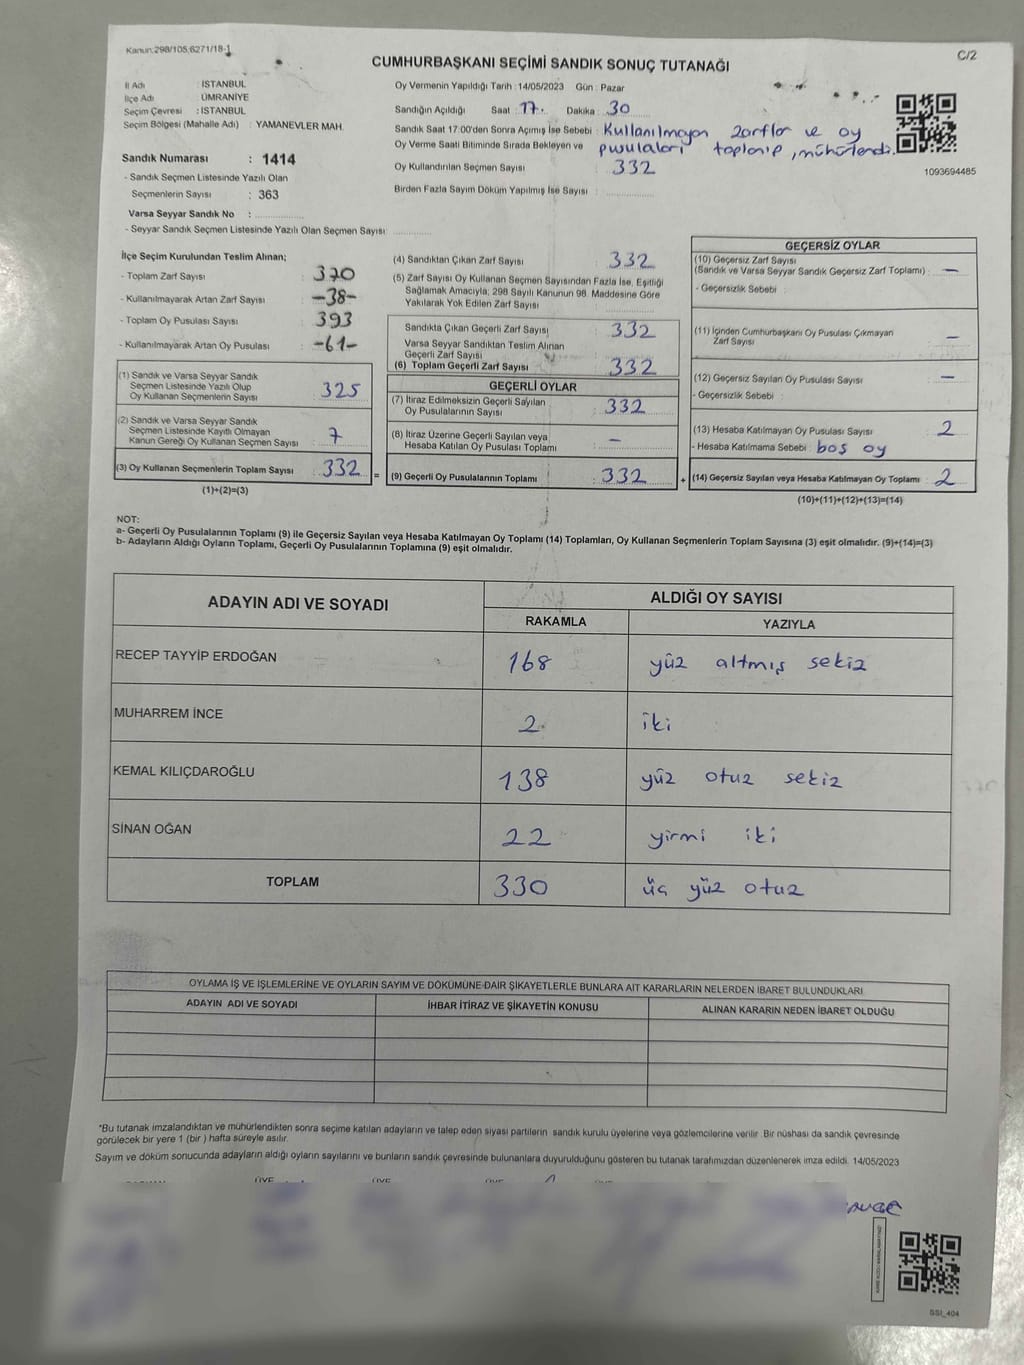 Kanun:298/105,6271/18-1
C/2
CUMHURBAŞKANI SEÇİMİ SANDIK SONUÇ TUTANAĞI
İl Adı : İSTANBUL
İlçe Adı : ÜMRANİYE
Seçim Çevresi : İSTANBUL
Seçim Bölgesi (Mahalle Adı) : YAMANEVLER MAH.
Sandık Numarası : 1414
- Sandık Seçmen Listesinde Yazılı Olan
Seçmenlerin Sayısı : 363
Varsa Seyyar Sandık No : ..............
- Seyyar Sandık Seçmen Listesinde Yazılı Olan Seçmen Sayısı: ...........
Oy Vermenin Yapıldığı Tarih : 14/05/2023 Gün : Pazar
Sandığın Açıldığı Saat : 17. Dakika : 30
Sandık Saat 17:00'den Sonra Açımış İse Sebebi : Kullanılmayan zarflar ve oy
Oy Verme Saati Bitiminde Sırada Bekleyen ve pusulaları toplanıp, mühürlendi.
Oy Kullandırılan Seçmen Sayısı : 332
Birden Fazla Sayım Döküm Yapılmış İse Sayısı : ..............
1093694485
İlçe Seçim Kurulundan Teslim Alınan;
- Toplam Zarf Sayısı : 370
- Kullanılmayarak Artan Zarf Sayısı : -38-
- Toplam Oy Pusulası Sayısı : 393
- Kullanılmayarak Artan Oy Pusulası : -61-
(1) Sandık ve Varsa Seyyar Sandık
Seçmen Listesinde Yazılı Olup
Oy Kullanan Seçmenlerin Sayısı : 325
(2) Sandık ve Varsa Seyyar Sandık
Seçmen Listesinde Kayıtlı Olmayan
Kanun Gereği Oy Kullanan Seçmen Sayısı : 7
(3) Oy Kullanan Seçmenlerin Toplam Sayısı : 332 =
(1)+(2)=(3)
(4) Sandıktan Çıkan Zarf Sayısı : 332
(5) Zarf Sayısı Oy Kullanan Seçmen Sayısından Fazla İse, Eşitliği
Sağlamak Amacıyla; 298 Sayılı Kanunun 98. Maddesine Göre
Yakılarak Yok Edilen Zarf Sayısı : ..............
Sandıkta Çıkan Geçerli Zarf Sayısı : 332
Varsa Seyyar Sandıktan Teslim Alınan
Geçerli Zarf Sayısı
(6) Toplam Geçerli Zarf Sayısı : 332
GEÇERLİ OYLAR
(7) İtiraz Edilmeksizin Geçerli Sayılan
Oy Pusulalarının Sayısı : 332
(8) İtiraz Üzerine Geçerli Sayılan veya
Hesaba Katılan Oy Pusulası Toplamı : -
(9) Geçerli Oy Pusulalarının Toplamı : 332 +
GEÇERSİZ OYLAR
(10) Geçersiz Zarf Sayısı
(Sandık ve Varsa Seyyar Sandık Geçersiz Zarf Toplamı) : -
- Geçersizlik Sebebi :
(11) İçinden Cumhurbaşkanı Oy Pusulası Çıkmayan
Zarf Sayısı : -
(12) Geçersiz Sayılan Oy Pusulası Sayısı : -
- Geçersizlik Sebebi :
(13) Hesaba Katılmayan Oy Pusulası Sayısı : 2
- Hesaba Katılmama Sebebi : boş oy
(14) Geçersiz Sayılan veya Hesaba Katılmayan Oy Toplamı : 2
(10)+(11)+(12)+(13)=(14)
NOT:
a- Geçerli Oy Pusulalarının Toplamı (9) ile Geçersiz Sayılan veya Hesaba Katılmayan Oy Toplamı (14) Toplamları, Oy Kullanan Seçmenlerin Toplam Sayısına (3) eşit olmalıdır. (9)+(14)=(3)
b- Adayların Aldığı Oyların Toplamı, Geçerli Oy Pusulalarının Toplamına (9) eşit olmalıdır.
ADAYIN ADI VE SOYADI ALDIĞI OY SAYISI
RAKAMLA YAZIYLA
RECEP TAYYİP ERDOĞAN 168 yüz altmış sekiz
MUHARREM İNCE 2 iki
KEMAL KILIÇDAROĞLU 138 yüz otuz sekiz
SİNAN OĞAN 22 yirmi iki
TOPLAM 330 üç yüz otuz
OYLAMA İŞ VE İŞLEMLERİNE VE OYLARIN SAYIM VE DÖKÜMÜNE DAİR ŞİKAYETLERLE BUNLARA AİT KARARLARIN NELERDEN İBARET BULUNDUKLARI
ADAYIN ADI VE SOYADI İHBAR İTİRAZ VE ŞİKAYETİN KONUSU ALINAN KARARIN NEDEN İBARET OLDUĞU
*Bu tutanak imzalandıktan ve mühürlendikten sonra seçime katılan adayların ve talep eden siyasi partilerin sandık kurulu üyelerine veya gözlemcilerine verilir. Bir nüshası da sandık çevresinde
görülecek bir yere 1 (bir ) hafta süreyle asılır.
Sayım ve döküm sonucunda adayların aldığı oyların sayılarını ve bunların sandık çevresinde bulunanlara duyurulduğunu gösteren bu tutanak tarafımızdan düzenlenerek imza edildi. 14/05/2023
ÜYE ÜYE
SSI_404